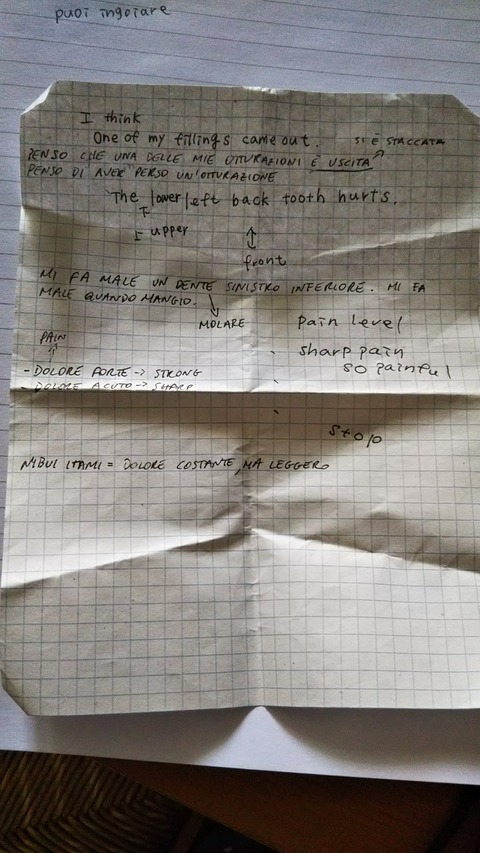 puoi ingoiare
I think
One of my fillings came out. SI È STACCATA
PENSO CHE UNA DELLE MIE OTTURAZIONI È USCITA
PENSO DI AVER PERSO UN'OTTURAZIONE
The lower left back tooth hurts.
upper
front
MI FA MALE UN DENTE SINISTRO INFERIORE. MI FA
MALE QUANDO MANGIO.
MOLARE
Pain level
PAIN
sharp pain
so painful
- DOLORE FORTE -> STRONG
- DOLORE ACUTO -> SHARP
Stop
NIBUI ITAMI = DOLORE COSTANTE, MA LEGGERO